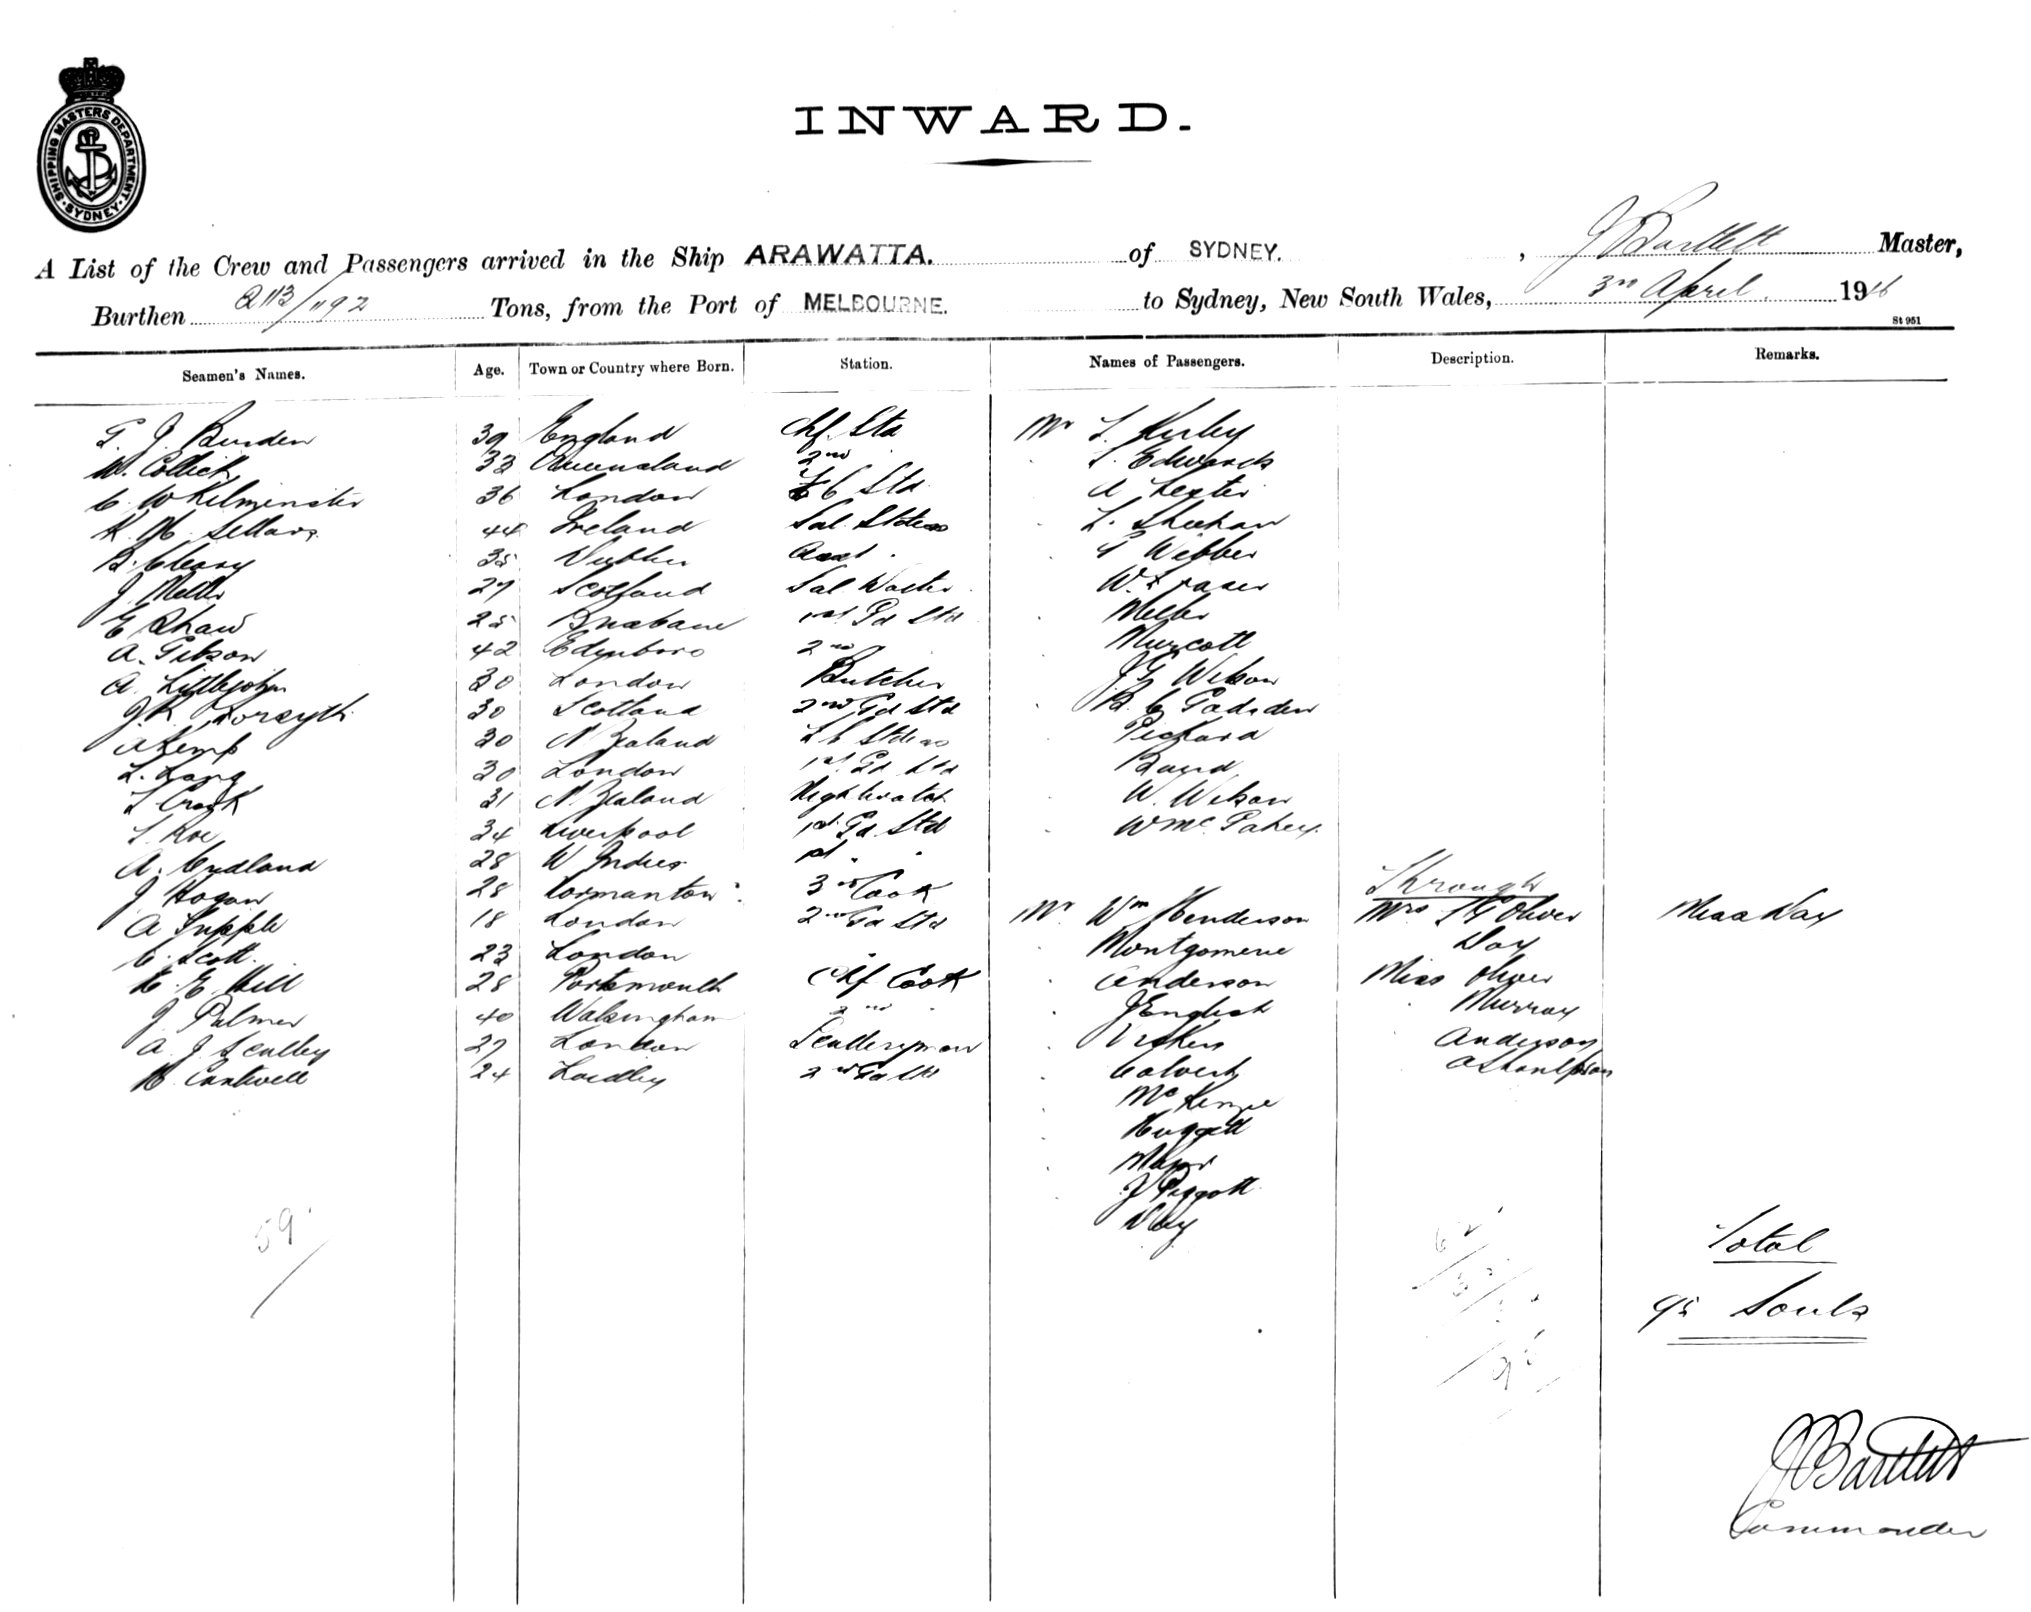 SHIPPING MASTERS DEPARTMENT
SYDNEY
INWARD.
A List of the Crew and Passengers arrived in the Ship ARAWATTA. of SYDNEY. , J Bartlett Master,
Burthen 2113/1192 Tons, from the Port of MELBOURNE. to Sydney, New South Wales, 3rd April 1916
St 951
Seamen's Names. Age. Town or Country where Born. Station. Names of Passengers. Description. Remarks.
J. Burden 39 England Chf. Std Mr Kirby
W. Collick 33 Queensland 2nd Edwards
C. W Kilminster 36 London Std A Lester
Sellars 44 Ireland Sal. Stdess L. Sheehan
B. Cleary 35 Dublin Asst. Webber
J. Mello 27 Scotland Sal. Waiter W. Fraser
E Shaw 25 Brisbane 1st Gd Std Meller
A. Gibson 42 Edynboro 2nd Murcott
A. Littlejohn 30 London Butcher J G Wilson
J. R. Forsyth 30 Scotland 2nd Gd Std B. C Gadsden
A Kemp 30 N Zealand Stdess Pickard
L. Lang 30 London 1st Gd Std Baird
Crook 31 N. Zealand Nightwatch W. Wilson
Roe 34 Liverpool 1st Gd Std Wm
A. Cudland 28 W Indies
Through
J Hogan 28 3rd Cook
A Supple 18 London 2nd Gd Std Mr Wm Henderson Mrs Oliver Miss Day
C. Scott. 23 London " Montgomerie Day
E. Hill 28 Portsmouth Chf Cook Anderson Miss Oliver
J. Palmer 40 Walsingham 2nd " J English Murray
A. J Sculley 27 London Sculleryman Vickers Anderson
Cantwell 24 Laidley 2nd Gd Std Calvert
McKenzie
Huggett
Major
J Piggott
Day
59
Total
95 Souls
J Bartlett
Commander